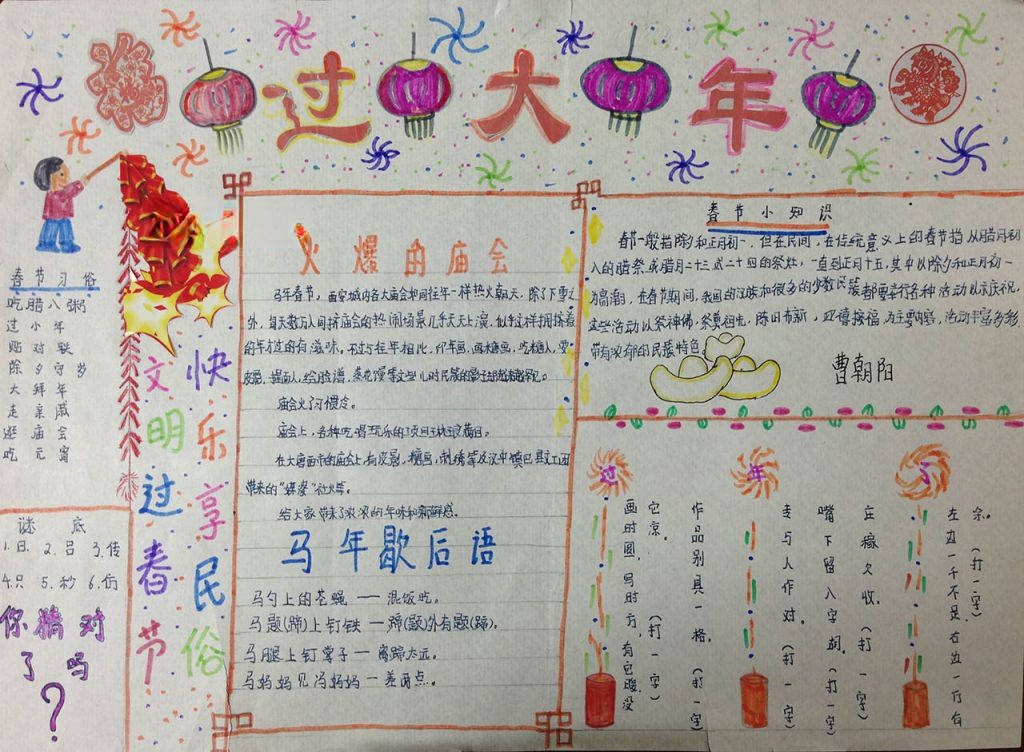 过大年
春节习俗
吃腊八粥
过小年
贴对联
除夕守岁
大拜年
走亲戚
逛庙会
吃元宵
谜底
1.日 2.吕 3.传
4.只 5.秒 6.伤
你猜对
了吗
?
快乐享民俗
文明过春节
火爆的庙会
马年春节，西安城内各大庙会如同往年一样热火朝天，除了下雪之
外，每天数万人同挤庙会的热闹场景几乎天天上演，似乎这样拥挤着
的年才过的有滋味。不过与往年相比，印年画，画糖画，吃糖人，耍
皮影，捏面人，绘脸谱，蒸花馍等这些儿时民族的影子却越来越稀记。
庙会火了习惯冷。
庙会上，各种吃喝玩乐的项目琳琅满目。
在大唐西市的庙会上，有皮影，糖画，刺绣等及汉中镇巴县文工团
带来的"媒婆"社火等。
给大家带来了浓浓的年味和新鲜感。
马年歇后语
马勺上的苍蝇 — 混饭吃。
马题(蹄)上钉铁 — 蹄(题)外有题(蹄)。
马腿上钉掌子 — 离蹄太远。
马妈妈见冯妈妈 — 差两点。
春节小知识
春节一般指除夕和正月初一，但在民间，在传统意义上的春节指从腊月初
八的腊祭或腊月二十三或二十四的祭灶，一直到正月十五，其中以除夕和正月初一
为高潮，在春节期间，我国的汉族和很多的少数民族都要举行各种活动以示庆祝，
这些活动以祭神佛，祭奠祖先，除旧布新，迎禧接福为主要内容，活动丰富多彩，
带有浓郁的民族特色。
曹朝阳
过
年
了
画时圆，写时方，有它暖，没
它凉。（打一字）
作品别具一格。（打一字）
专与人作对。（打一字）
嘴下留八字胡。（打一字）
庄稼欠收。（打一字）
左边一千不足，右边一万有
余。（打一字）